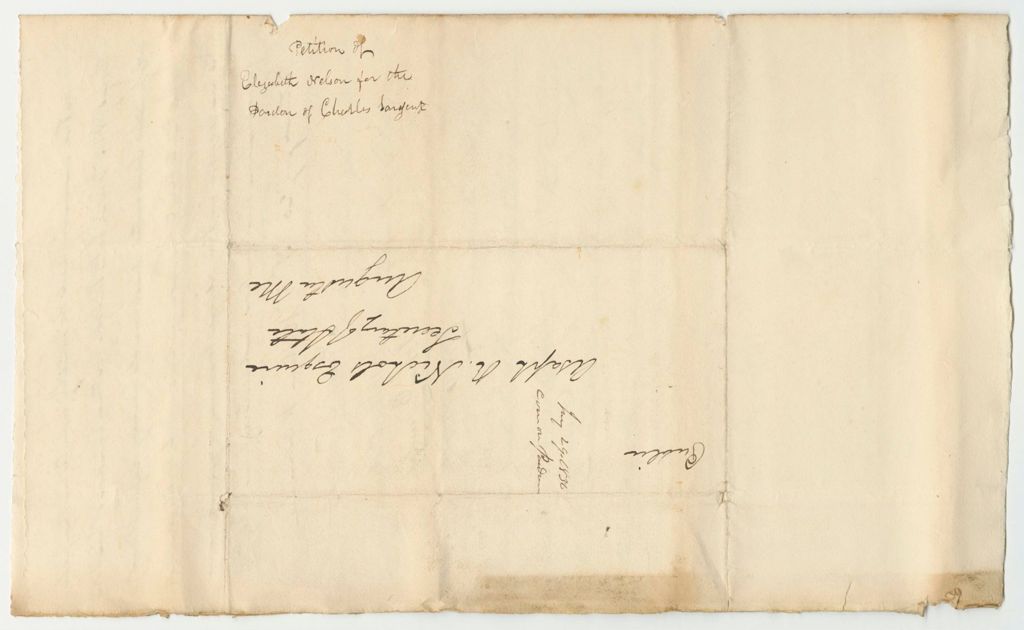 Petition of
Elizabeth Nelson for the
Pardon of Charles Sargent
Asaph R. Nichols Esquire
Secretary of State
Augusta Me
Com on Pardon